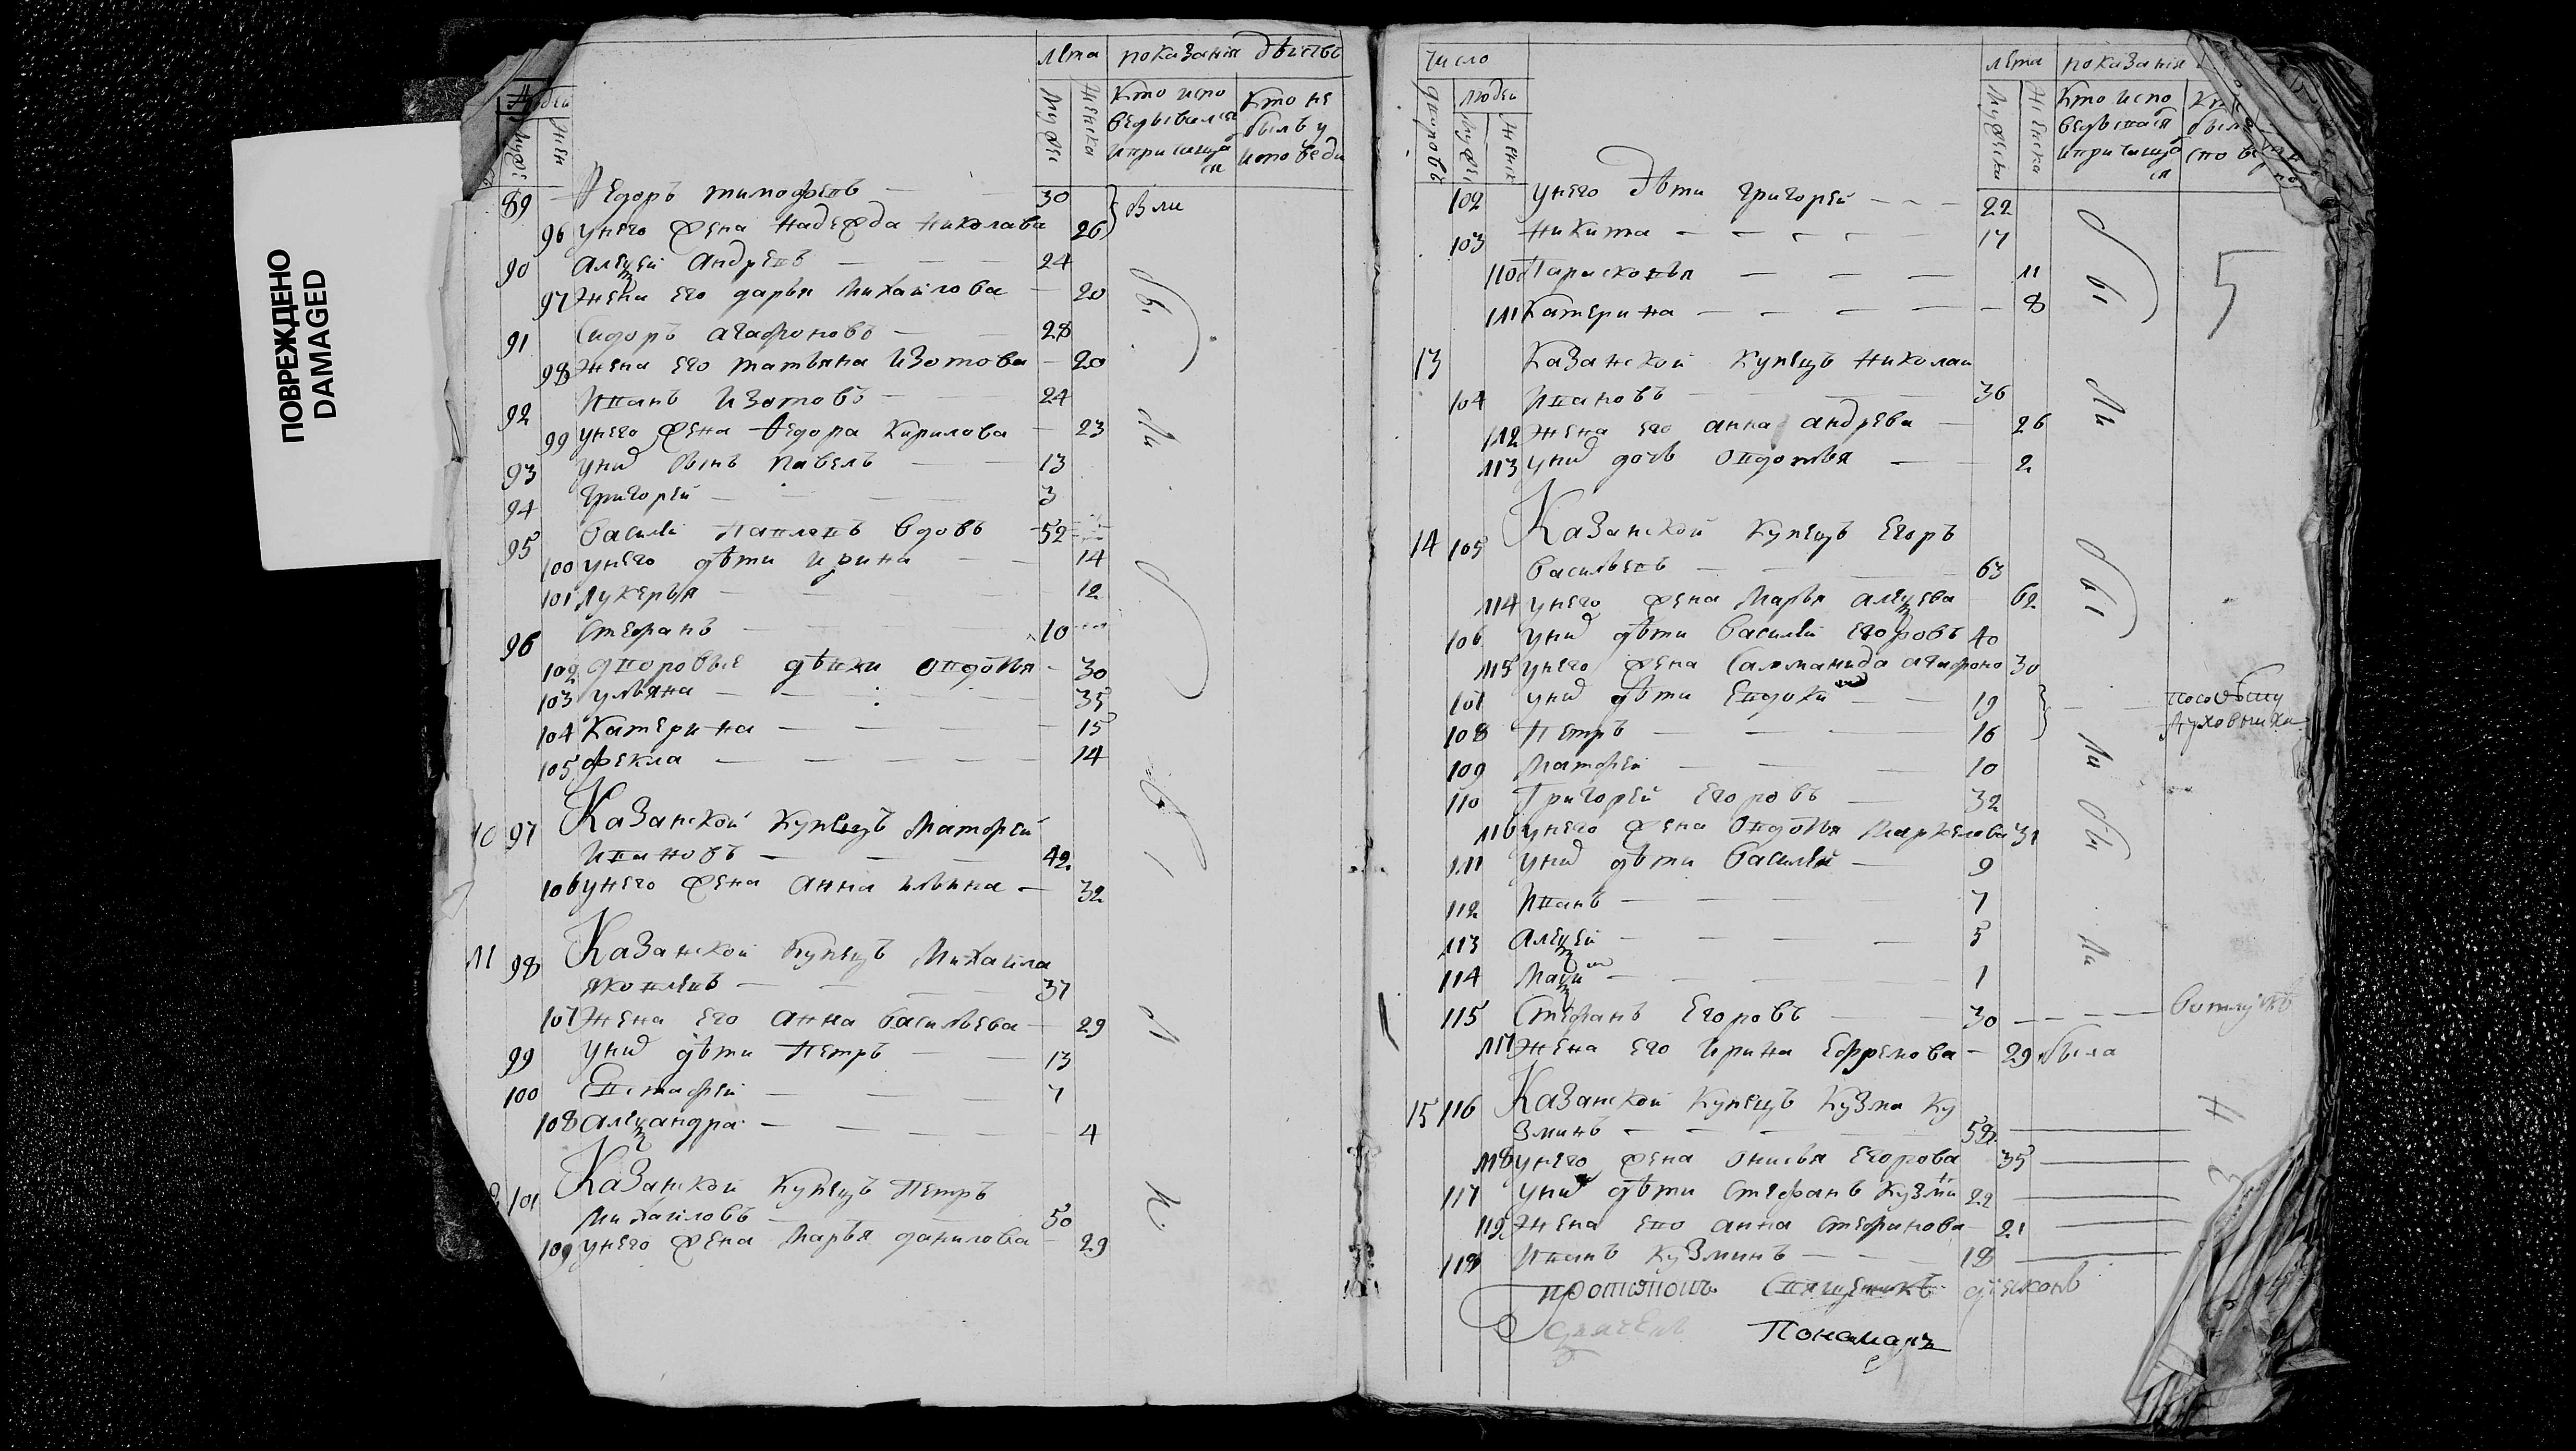 ПОВРЕЖДЕНО
DAMAGED
лѣта показанія дѣйства
людей
Муже
жен
Мужес
Женска
Кто испо
ведывался
и причащал
ся
Кто не
былъ у
исповеди
89 Ѳедоръ тимофѣевъ 30
были
96 унего жена надежда николава 26
90 алеѯей андрѣевъ 24
97 жена его дарья михаилова 20
91 Сидоръ агафоновъ 28
98 жена его татьяна изотова 20
92 иванъ изотовъ 24
99 унего жена Ѳедора кирилова 23
93 унихъ сынъ павелъ 13
94 григорей 3
95 василей павловъ вдовъ 52
100 унего дѣти ирина 14
101 лукерья 12
96 стефанъ 10
102 дворовые дѣвки овдотья 30
103 ульяна 35
104 катерина 15
105 фекла 14
10 97 Казанской купецъ матфей
ивановъ 42
106 унего жена анна ильина 32
11 98 Казанской купецъ михаила
яковлевъ 37
107 жена его анна васильева 29
99 унихъ дѣти петръ 13
100 Евстафей 7
108 алеѯандра 4
101 Казанской купецъ петръ
михаиловъ 50
109 унего жена марья данилова 29
бы
ли
бы
ли
число
дворовъ
людей
мужес
женск
лѣта показанія
Мужески
Женска
Кто испо
ведывался
и причащал
ся
102 унего дѣти григорей 22
103 никита 17
110 Парасковья 11
111 Катерина 8
5
13 Казанской купецъ николаи
104 ивановъ 36
112 жена его анна андрева 26
113 унихъ дочь овдотья 2
14 105 Казанской купецъ Егоръ
васильевъ 63
114 унего жена марья алеѯева 62
106 унихъ дѣти василей Егоровъ 40
115 унего жена Саломанида агафоно 30
107 унихъ дѣти Евдоким 19
108 петръ 16
109 матфей 10
110 Григорей Егоровъ 32
116 унего жена овдотья маркелова 31
111 унихъ дѣти василей 9
112 иванъ 7
113 алеѯей 5
114 маѯим 1
115 Стефанъ Егоровъ 30
117 жена его ирина Ефремова 29 была
15 116 Казанской купецъ кузма ку
зминъ 58
118 унего жена онисья Егорова 35
117 унихъ дѣти стефанъ кузми 22
119 жена ево анна стефанова 21
118 иванъ кузминъ 18
бы
ли
бы
ли
бы
ли
протопопъ Священникъ діаконъ
Пономарь